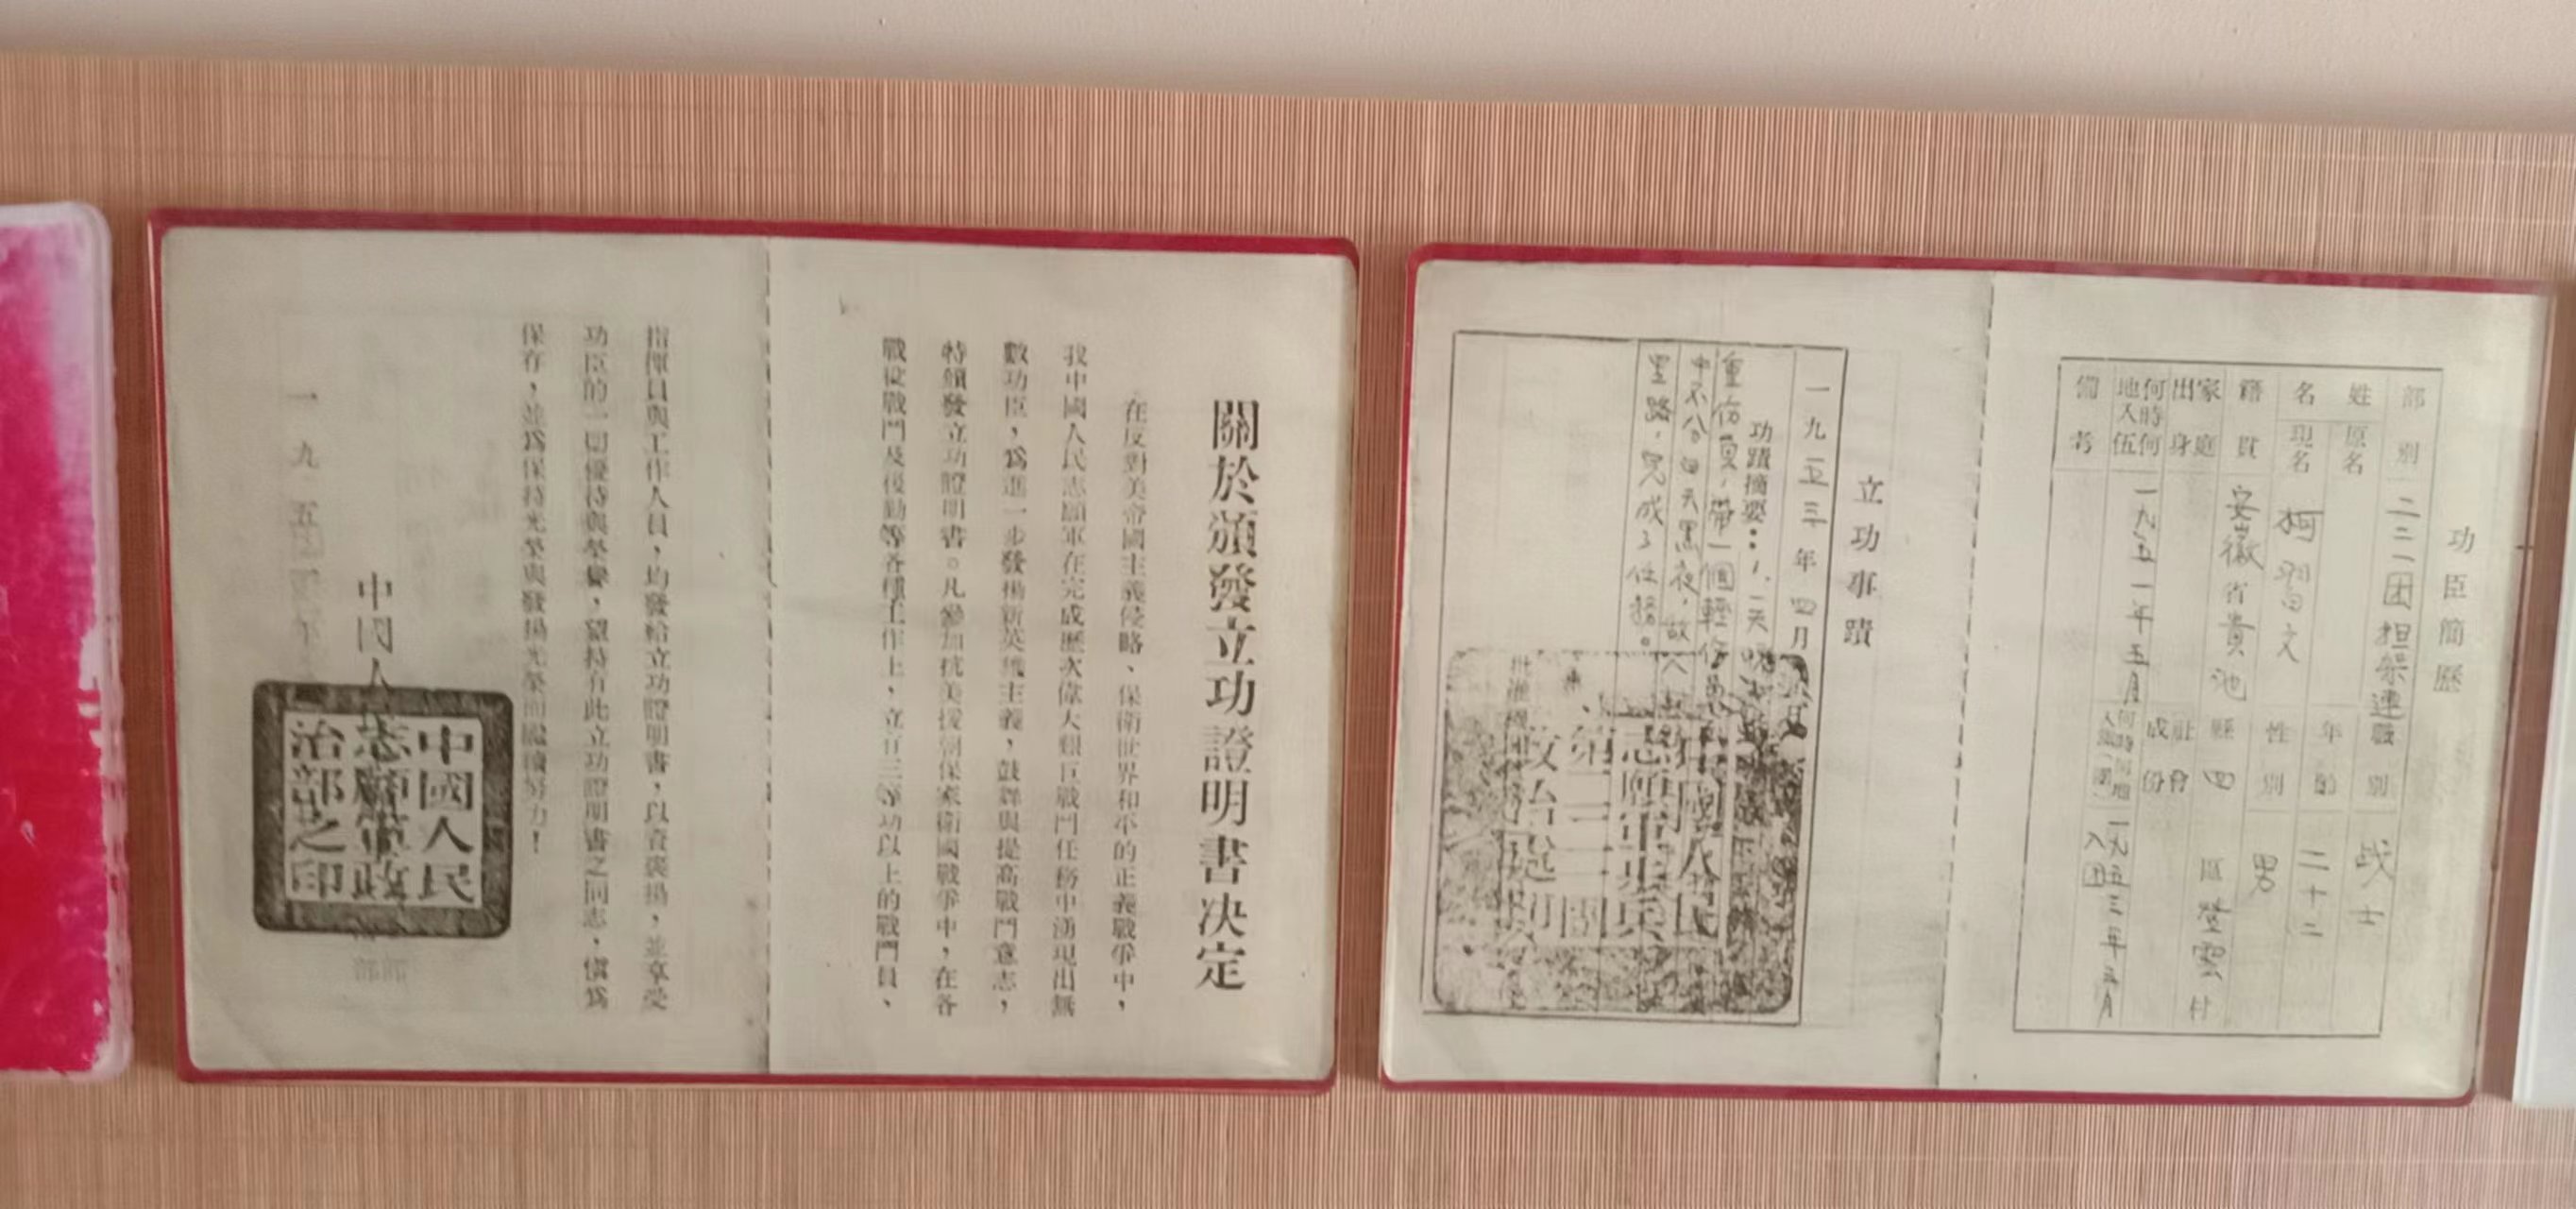 功臣簡歷
部別 二三一团担架連 職別 战士
姓名 原名 年齡 二十二
現名 柯 文 性別 男
籍貫 安徽省貴池縣四區 雲村
家庭出身 社會成份
何時何地入伍 一九五一年五月 一九五三年五月入团
備考
立功事蹟
一九五三年四月
功蹟摘要：1.一天晚
重伤員，帶一個輕伤員
中不分白天黑夜，
里路，完成了任務。
中國人民
志願軍
第二三一團
政治處印
關於頒發立功證明書決定
在反對美帝國主義侵略、保衛世界和平的正義戰爭中，
我中國人民志願軍在完成歷次偉大艱巨戰鬥任務中湧現出無
數功臣，爲進一步發揚新英雄主義，鼓舞與提高戰鬥意志，
特頒發立功證明書。凡參加抗美援朝保家衛國戰爭中，在各
戰役戰鬥及後勤等各種工作上，立有三等功以上的戰鬥員、
指揮員與工作人員，均發給立功證明書，以資褒揚，並享受
功臣的一切優待與榮譽，望持有此立功證明書之同志，慎爲
保存，並爲保持光榮與發揚光榮而繼續努力！
中國人民
志願軍政
治部之印
一九五